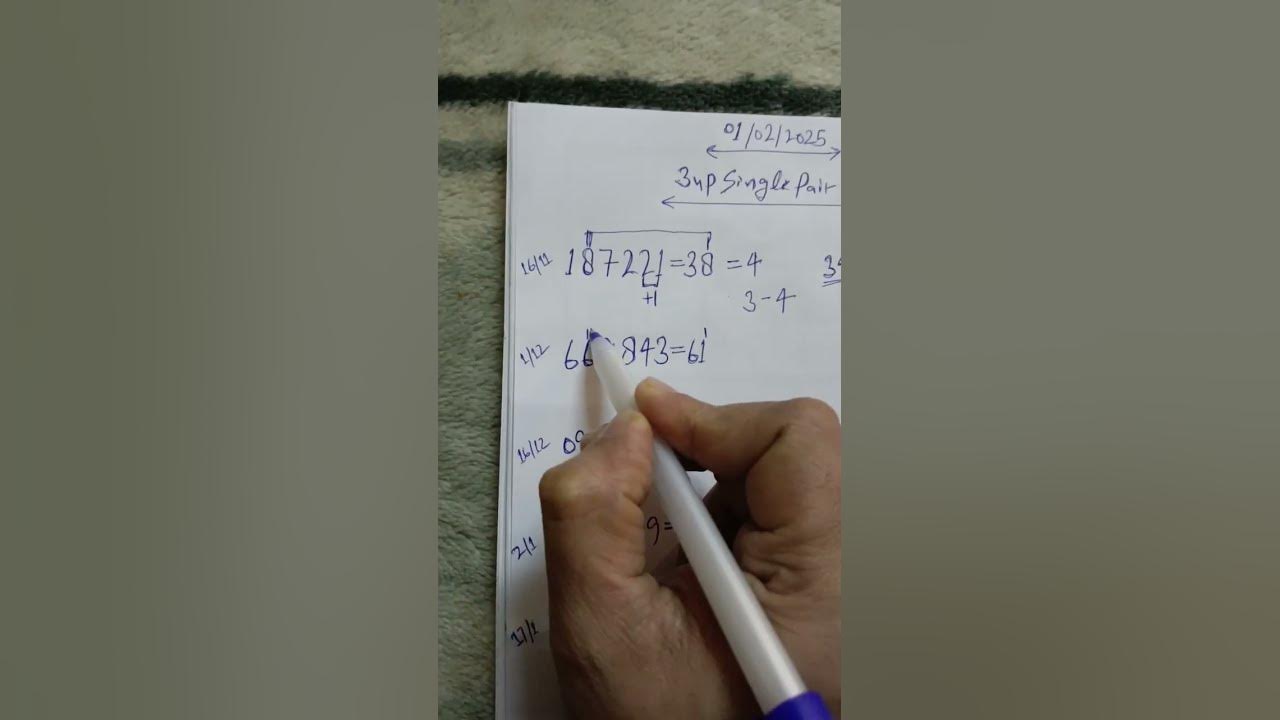 01/02/2025
3up Single Pair
16/11 187221=38 =4
+1
3-4
1/12 843=61
16/12 09
2/1 9=
17/1